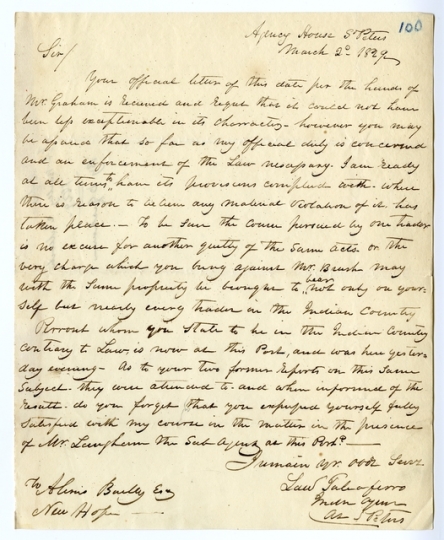 100
Agency House St Peters
March 2d 1829
Sir/
Your official letter of this date per the hands of
Mr. Graham is received and regret that it could not have
been less exceptionable in its character - however you may
be assured that so far as my official duty is concerned
and an enforcement of the Law nesassary. I am ready
at all times to have its provisions complied with. where
there is reason to believe any material violation of it has
taken place. - to be sure the course pursued by one trader
is no excuse for another guilty of the same acts. or the
very charge which you bring against Mr. Brush may
with the same propriety be brought to bear not only on your-
self but nearly every trader in the Indian Country
Perrout whom you State to be in the Indian Country
contrary to Law, is now at this Post, and was here yester-
day evening - As to your two former reports on this same
Subject. they were attended to. and when informed of the
result. do you forget that you expressed yourself fully
satisfied with my course in the matter in the presence
of Mr. Langham the Sub Agent at this Post?
I remain yr. obdt Servt
Law Taliaferro
Indn Agent
At St Peters
To Alexis Bailly Esq
New Hope